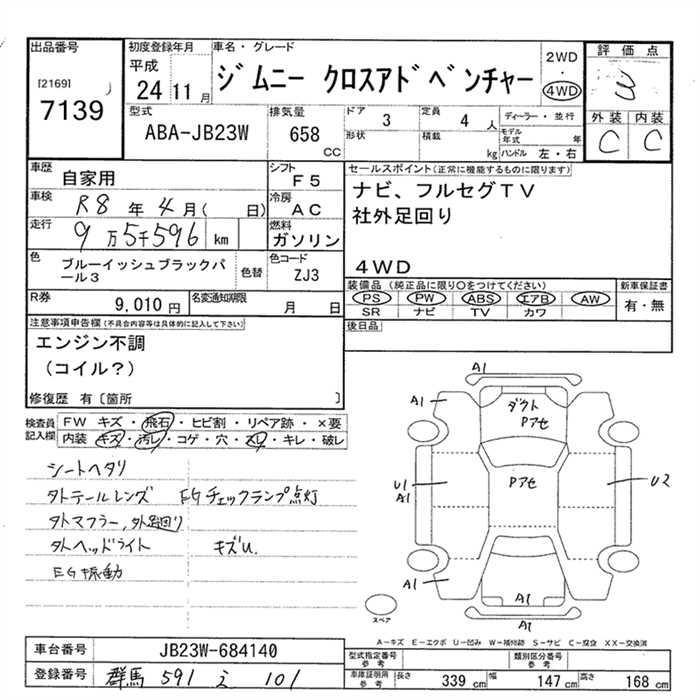 出品番号 初度登録年月 車名・グレード 2WD ・ 4WD 評価点
[2169]
7139
平成 24 11月
ジムニー クロスアドベンチャー
3
型式 排気量 ドア 3 定員 4 人 ディーラー・並行 外装 内装
ABA-JB23W 658 CC 形状 積載 kg モデル年式 年 C C
ハンドル 左・右
車歴 自家用 シフト F5 セールスポイント(正常に機能するものに限ります)
車検 R8 年 4 月( 日) 冷房 AC ナビ、フルセグTV
走行 9万5千596 km 燃料 ガソリン 社外足回り
色 ブルーイッシュブラックパール3 色替 色コード ZJ3 4WD
装備品(純正品に限り○をつけてください) 新車保証書
R券 9,010円 名変通知期限 月 日 PS PW ABS エアB AW 有・無
SR ナビ TV カワ
注意事項申告欄(不具合内容等は具体的に記入して下さい) 後日品
エンジン不調
(コイル?)
修復歴 有〔箇所 〕
検査員記入欄 FW キズ・飛石・ヒビ割・リペア跡・×要
内装 キズ・汚レ・コゲ・穴・スレ・キレ・破レ
シートヘタリ
タトテールレンズ EGチェックランプ点灯
タトマフラー,外足回り
タトヘッドライト キズU.
EG振動
A1
A1
ダクト
Pアセ
Pアセ
U1
A1
U2
A1
A1
スペア
A-キズ E-エクボ U-凹み W-補修跡 S-サビ C-腐食 XX-交換済
車台番号 JB23W-684140 型式指定番号 参考 類別区分番号 参考
登録番号 群馬 591 え 101 車庫証明用 参考 長さ 339 cm 幅 147 cm 高さ 168 cm